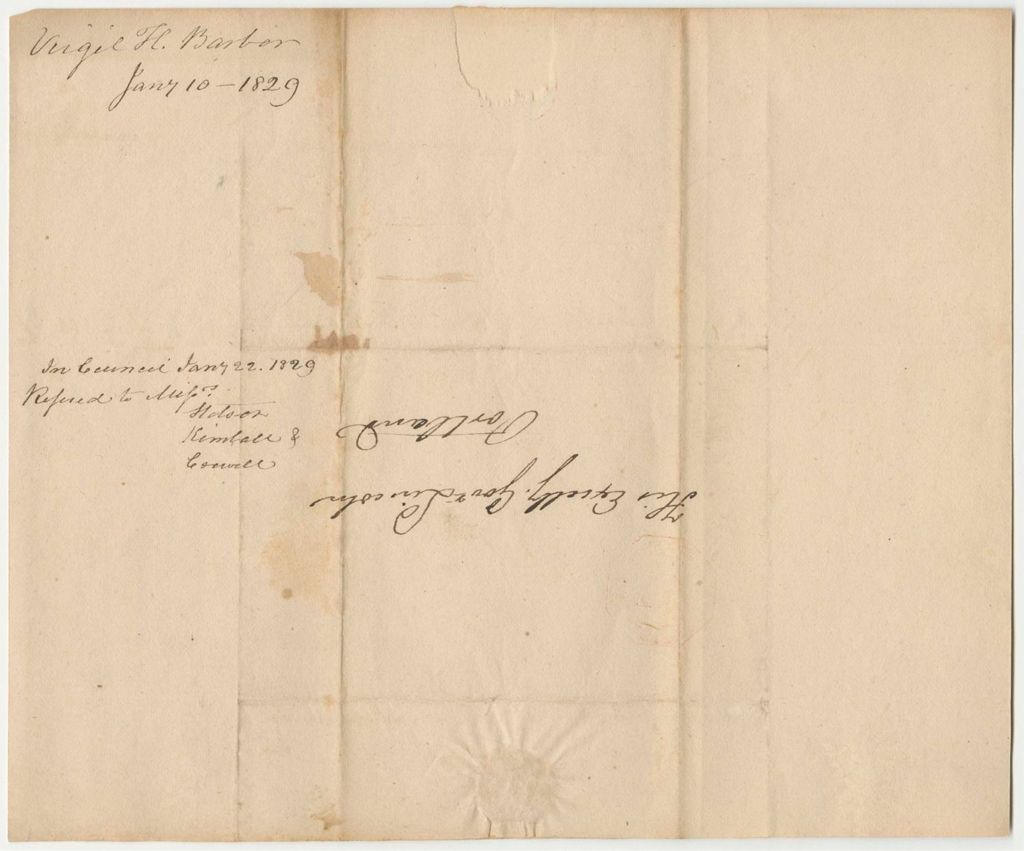 Virgil H. Barber
Jany 10 - 1829
In Council Jany 22. 1829
Refered to Messrs
Stetson
Kimball &
Cowell
His Excelly. Govr Lincoln
Portland